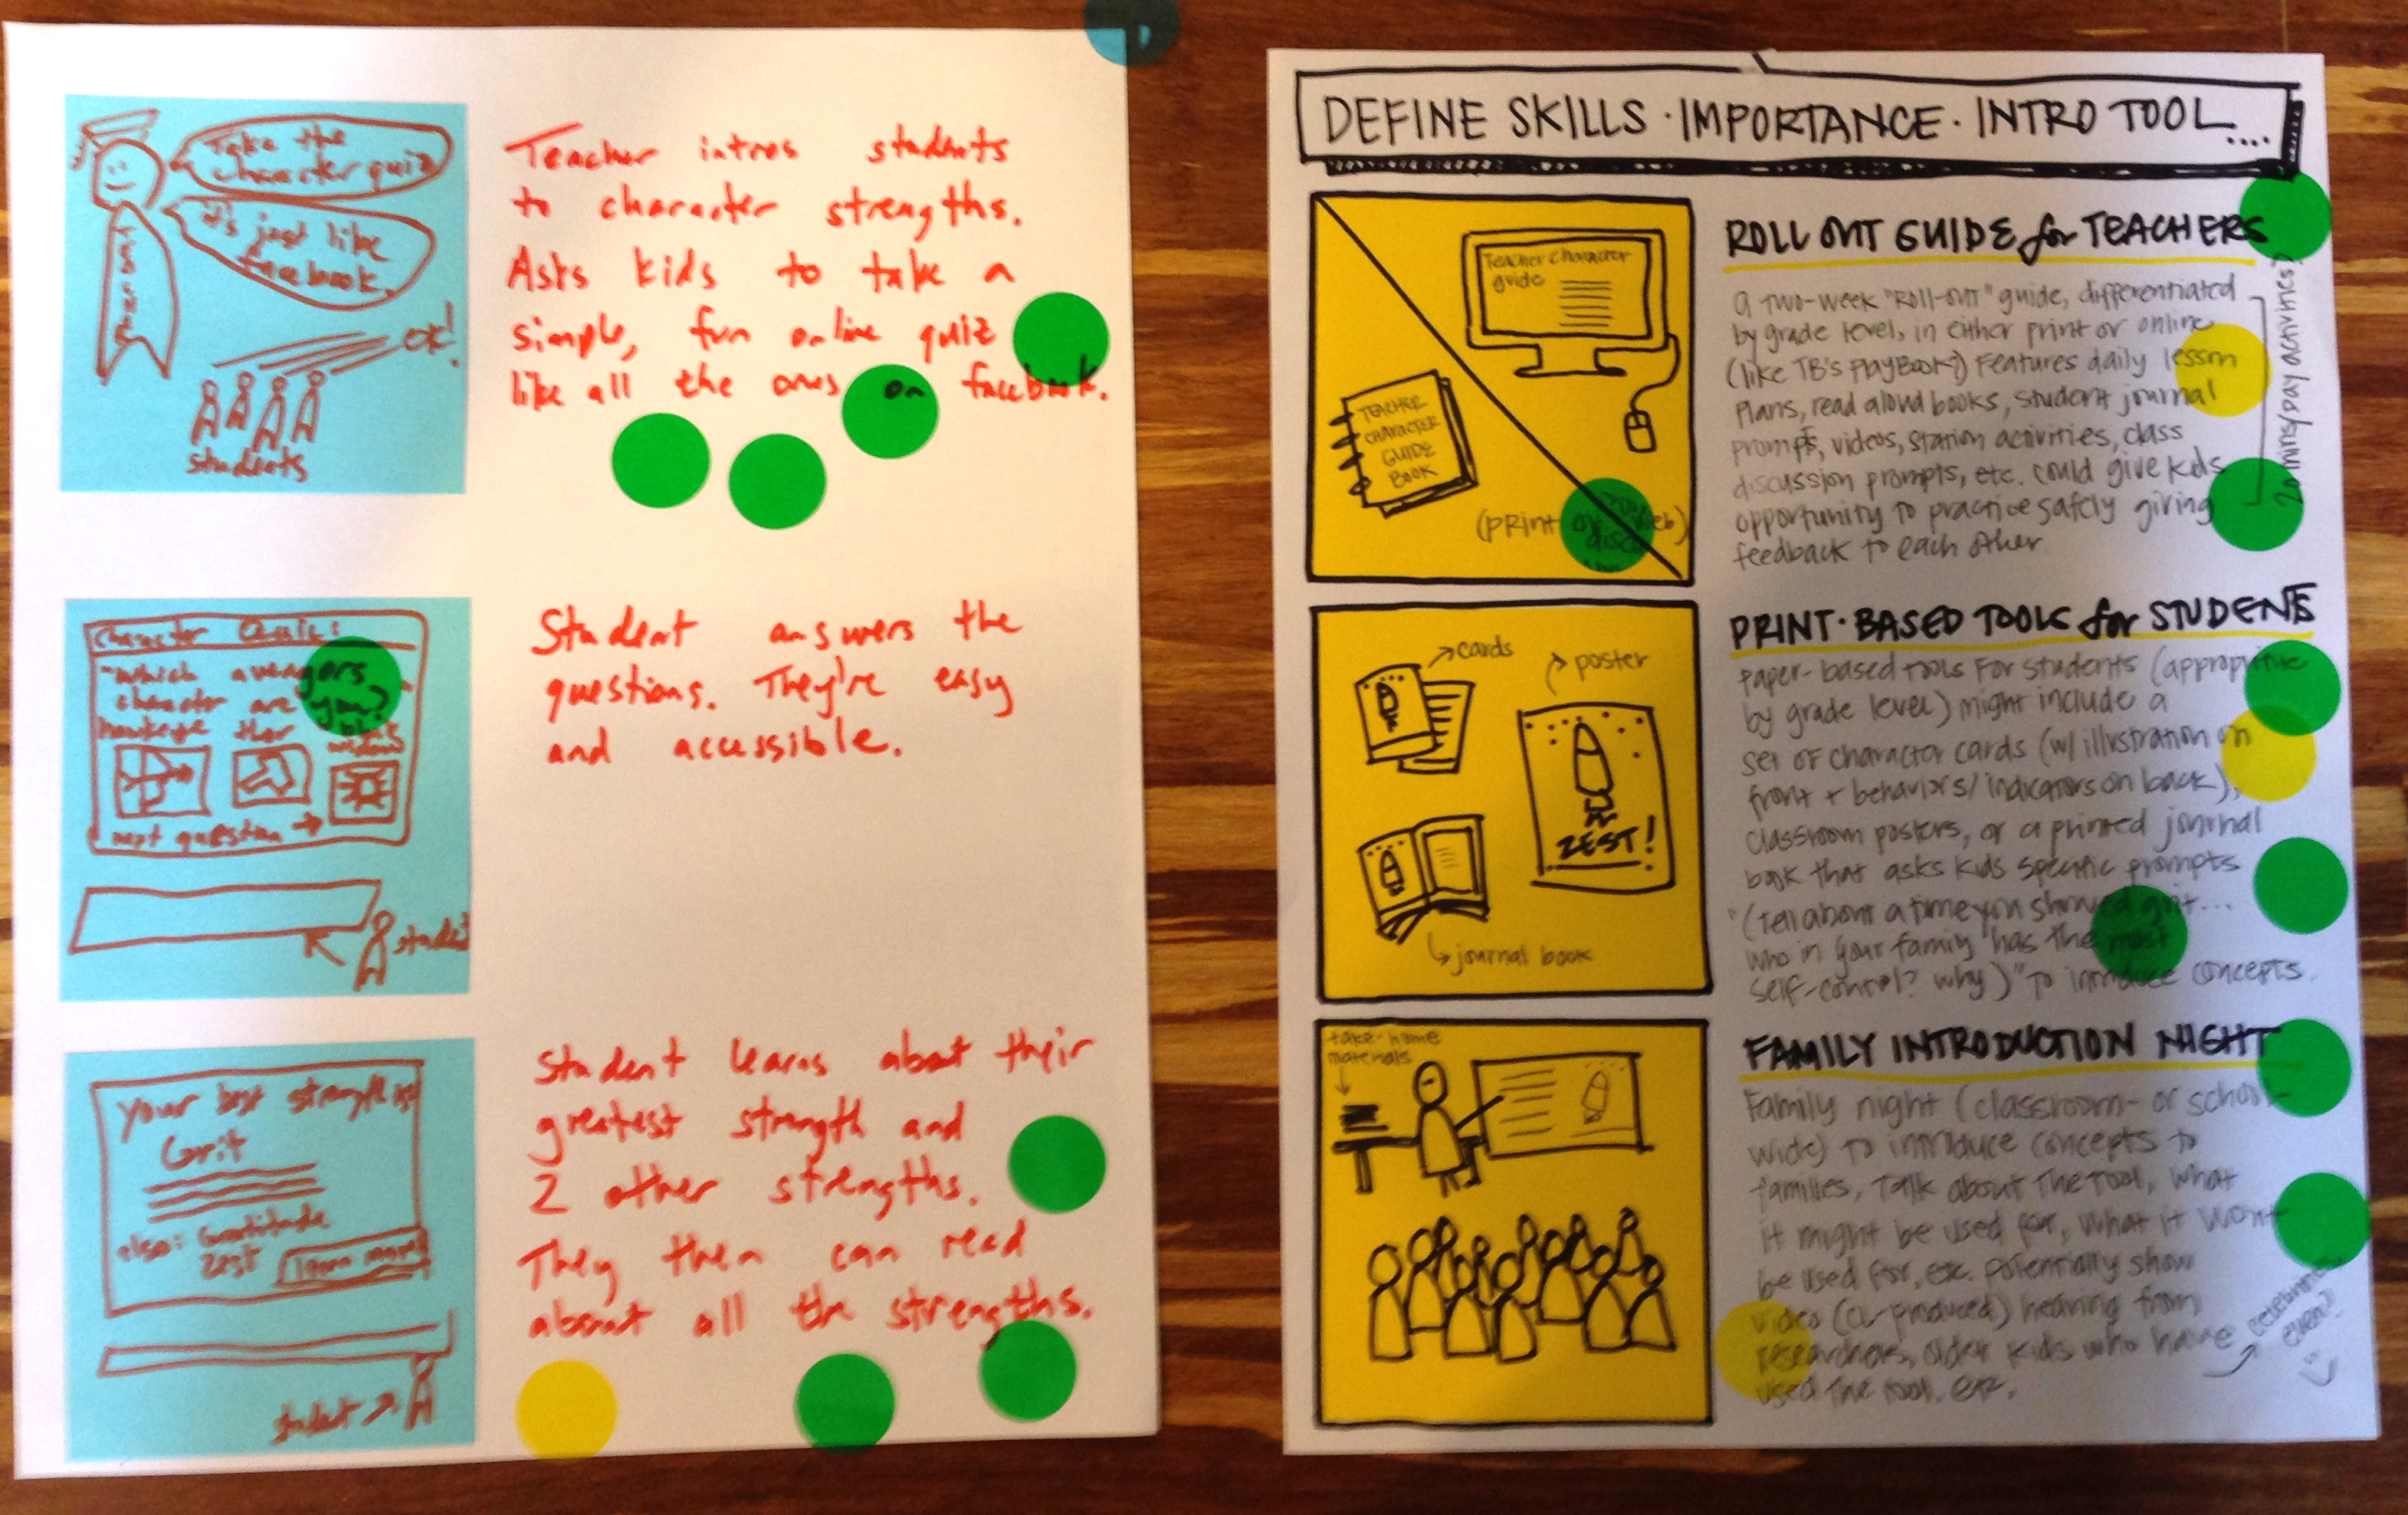 Take the
character quiz
it's just like
facebook.
OK!
students
Teacher intros students
to character strengths.
Asks kids to take a
simple, fun online quiz
like all the ones on facebook.
Character Quiz:
"Which avengers
character are you?"
hawkeye thor black
widow
next question →
student
Student answers the
questions. They're easy
and accessible.
Your best strength is:
Grit
also: Gratitude
Zest
learn more
student
Student learns about their
greatest strength and
2 other strengths.
They then can read
about all the strengths.
DEFINE SKILLS · IMPORTANCE · INTRO TOOL....
Teacher Character
guide
TEACHER
CHARACTER
GUIDE
BOOK
(print or web)
disc
ROLL OUT GUIDE for TEACHERS
A two-week "ROLL-OUT" guide, differentiated
by grade level, in either print or online
(like TB's PlayBook?) Features daily lesson
plans, read aloud books, student journal
prompts, videos, station activities, class
discussion prompts, etc. could give kids
opportunity to practice safely giving
feedback to each other
20 mins/day activities?
cards
poster
ZEST!
journal book
PRINT-BASED TOOLS for STUDENTS
Paper-based tools for students (appropriate
by grade level) might include a
set of character cards (w/ illustration on
front + behaviors/indicators on back),
classroom posters, or a printed journal
book that asks kids specific prompts
"(Tell about a time you showed grit...
who in your family has the most
self-control? why)" to introduce concepts.
take-home
materials
FAMILY INTRODUCTION NIGHT
Family night (classroom- or school-
wide) to introduce concepts to
families, talk about the tool, what
it might be used for, what it won't
be used for, etc. potentially show
video (CL-produced) hearing from
researchers, older kids who have
used the tool, etc.
celebrities
even?